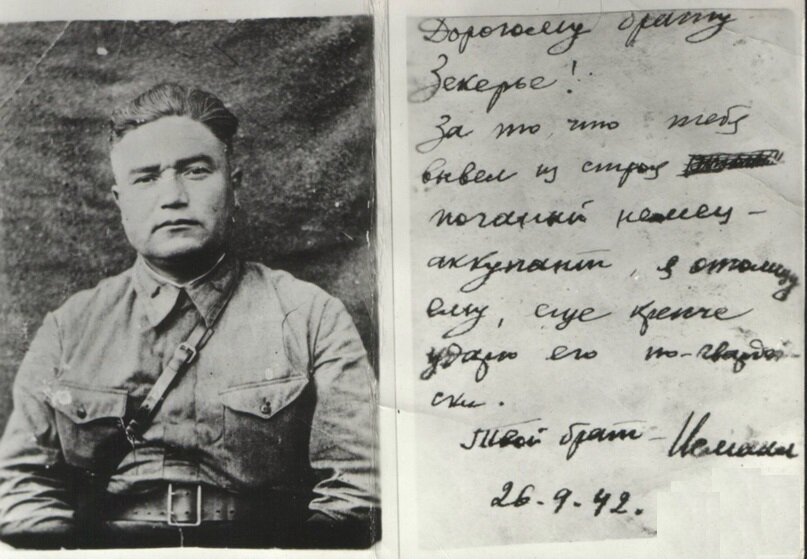 Дорогому брату
Зекерье!
За то, что тебя
вывел из строя
поганый немец-
аккупант, я отомщу
ему, еще крепче
ударю его по-гвардей-
ски.
Твой брат - Исмаил
26.9.42.